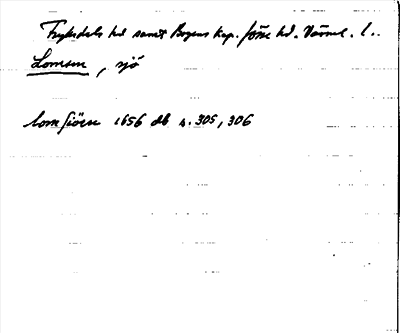 Fryksdals hd samt Bogens kap. förs. hd. Värml. l..
Lomsen, sjö
Lomsiöen 1656 db s. 305, 306